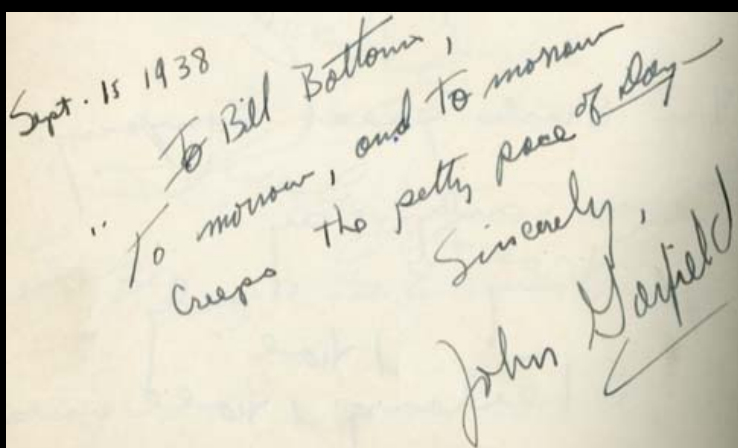 Sept. 15 1938
To Bill Bottoms,
" To morrow, and to morrow
Creeps the petty pace of Day—
Sincerely,
John Garfield